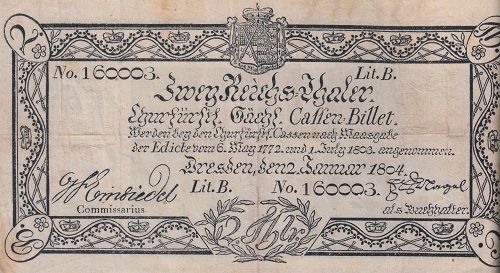 No. 160003. Lit. B.
Zwey Reichs-Thaler.
Churfürstl. Sächß. Cassen-Billet.
Werden bey den Churfürstl. Cassen nach Maasgabe
der Edicte vom 6. May 1772. und 1. July 1803. angenommen.
Dresden, den 2. Januar 1804.
Lit. B. No. 160003.
Commissarius. als Buchhalter.
2 Thlr